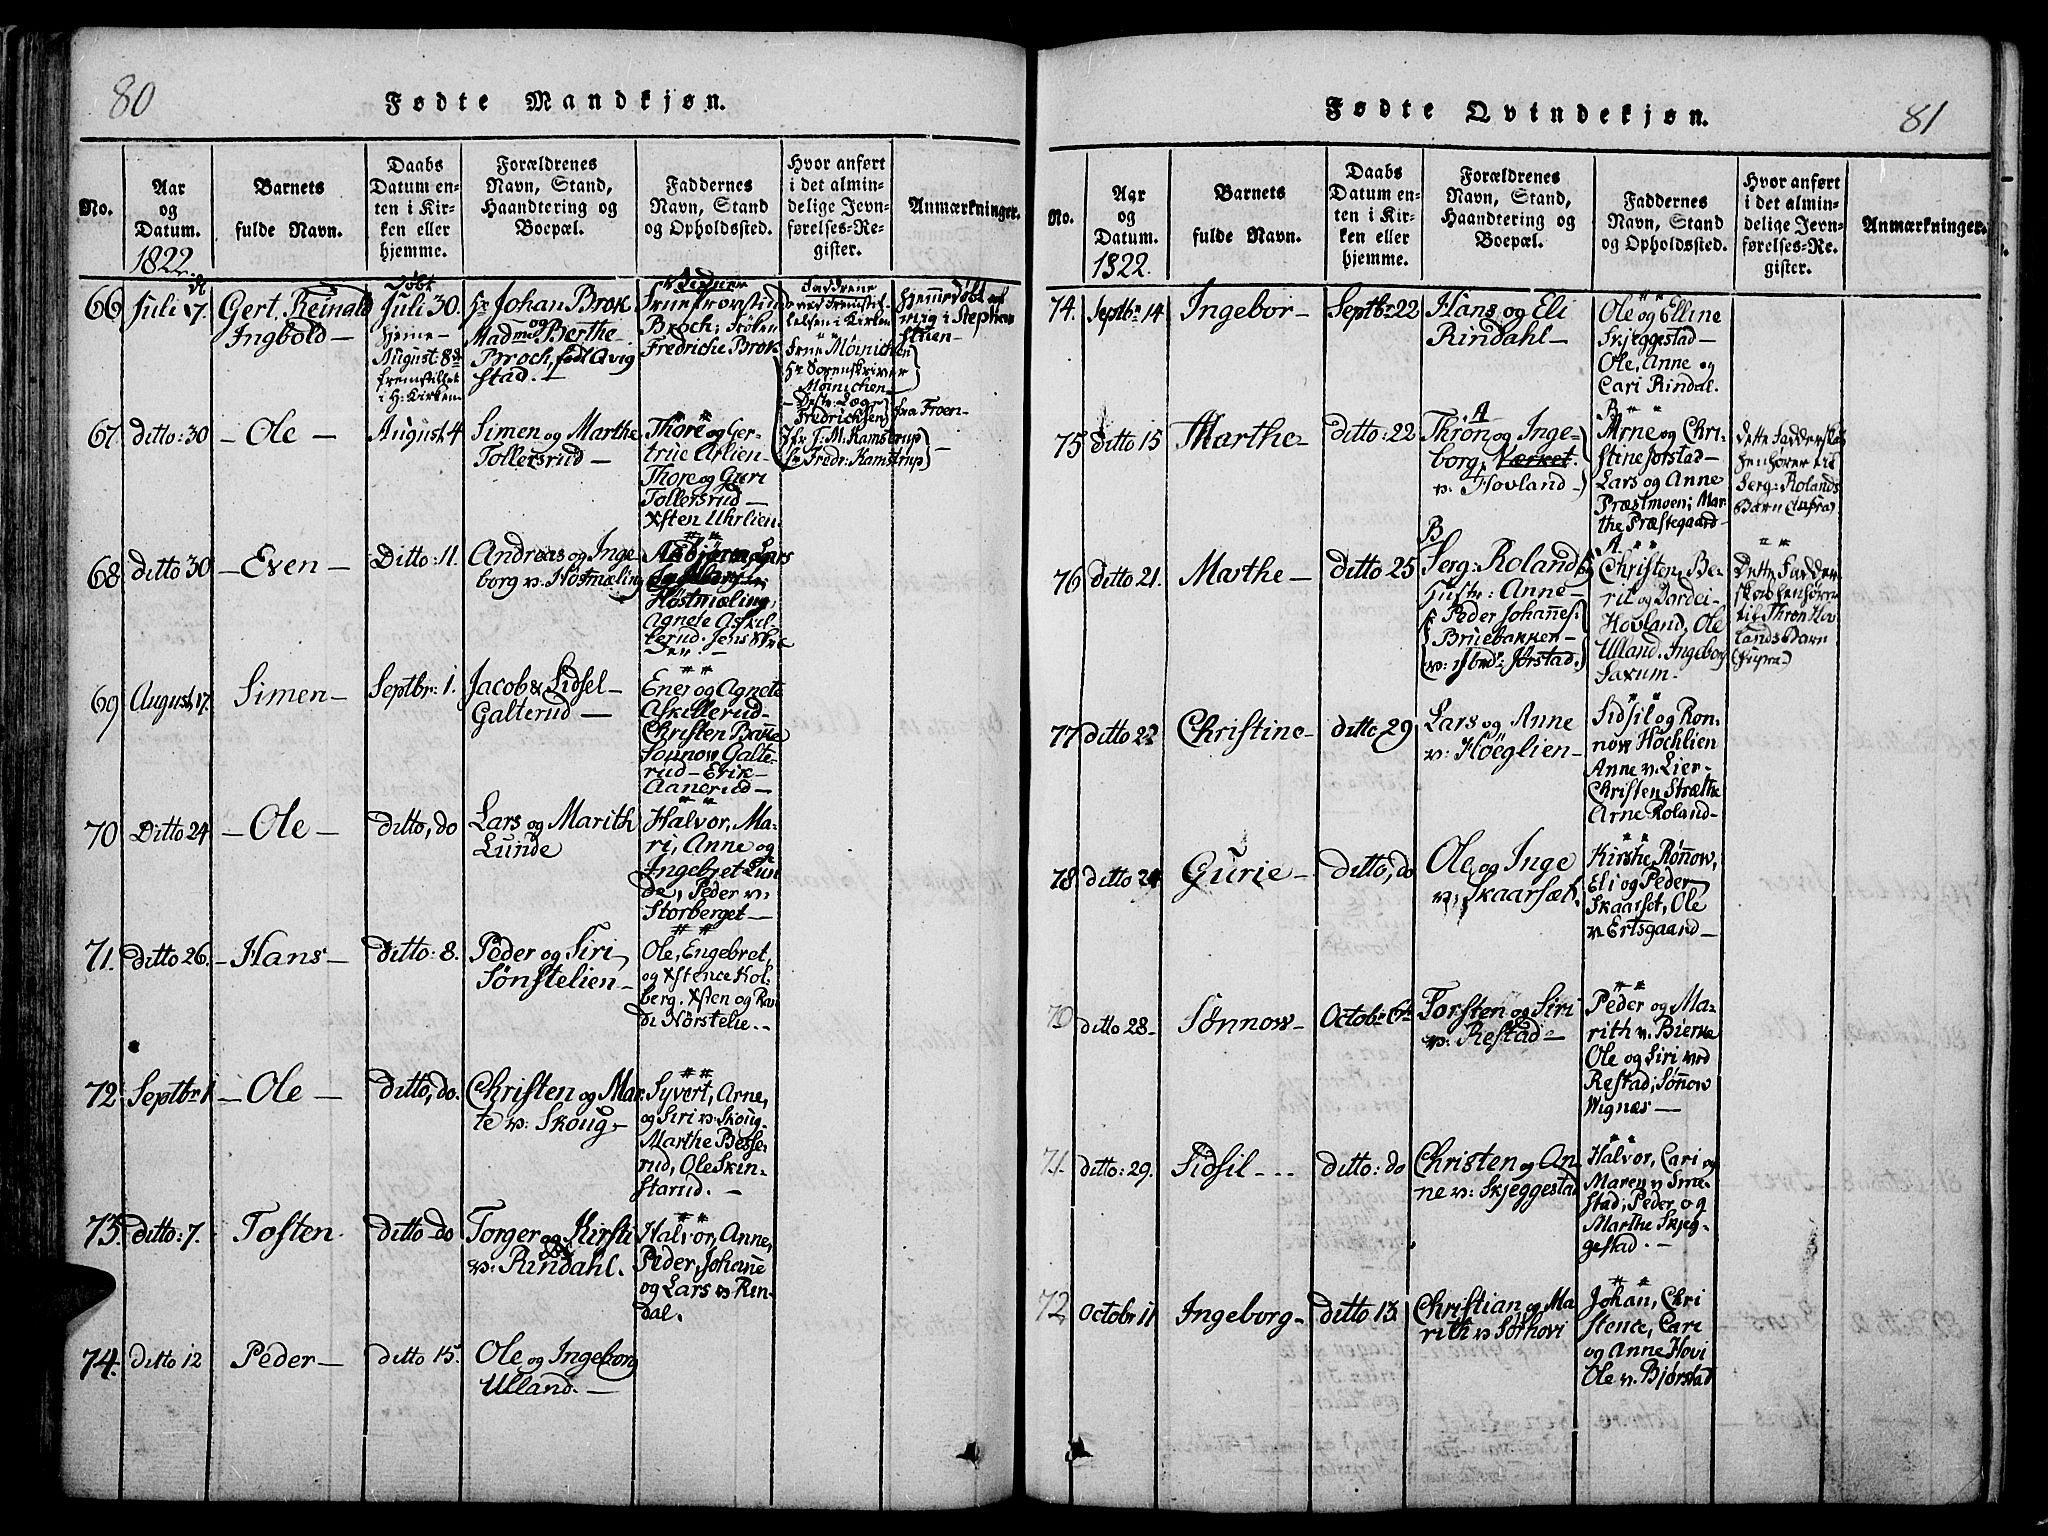 80
Fødte Mandkjøn.
No.
Aar
og
Datum.
1822.
Barnets
fulde Navn.
Daabs
Datum en-
ten i Kir-
ken eller
hjemme.
Forældrenes
Navn, Stand,
Haandtering og
Boepæl.
Faddernes
Navn, Stand
og Opholdssted.
Hvor anført
i det almin-
delige Jevn-
førelses-Re-
gister.
Anmærkninger.
66
Juli 7
Gert Reinald
Ingbold —
Døbt
Juli 30.
hjeme —
August 8de
fremstillet
i H: Kirken
Hr Johan Brok
og
Madme Berthe
Broch, født Avig
stad. —
Broch;
Fredriche Brok
Fadderne
ved fremstil
lelsen i Kirken
Møinichen
Hr Sorenskriver
Møinichen
Fredrichsen
Jfr J: M. Kamstrup
Fredr: Kamstrup
hjemmedøbt af
mig i
fra Froen —
67.
ditto: 30
— Ole —
August 4
Simen og Marthe
Tollersrud —
Thore og Ger-
true Ørlien —
Thore og Guri
Tollersrud —
Xsten Uhrlien.
68.
ditto 30
— Even —
Ditto: 11.
Andreas og Inge
borg v: Høstmæling
Høstmæling,
Agnete Askil-
lerud. Jens
69
August 17.
Simen —
Septbr: 1.
Jacob & Sidsel —
Galterud —
Ener og Agnete
Askillerud —
Christen
Sønnow Galte-
rud — Erik —
Aanerud —
70
Ditto 24
— Ole —
ditto, do
Lars og Marith
Lunde
Halvor, Ma-
ri, Anne og
Ingebjet Lun
de, Peder v:
Storberget —
71.
ditto 26.
— Hans —
ditto: 8.
Peder og Siri
Sønstelien —
Ole, Engebret,
og Xstence Hol-
berg. Xsten og Ran
di Nørstelie. —
72
Septbr 1
— Ole —
ditto, do.
Christen og Mar
te v: Skoug —
Syvert, Arne,
og Siri v: Skoug.
Marthe Besse-
rud, Ole Skin-
starud. —
73.
ditto: 7.
Tosten
ditto do
Torger og Kirsti
v: Rindahl.
Halvor, Anne,
Peder, Johanne
og Lars v Ren-
dal.
74.
ditto 12
Peder —
ditto 15.
Ole og Ingeborg
Ulland. —
81
Fødte Qvindekjøn.
No.
Aar
og
Datum.
1822.
Barnets
fulde Navn.
Daabs
Datum en-
ten i Kir-
ken eller
hjemme.
Forældrenes
Navn, Stand,
Haandtering og
Boepæl.
Faddernes
Navn, Stand
og Opholdssted.
Hvor anført
i det almin-
delige Jevn-
førelses-Re-
gister.
Anmærkninger.
74.
Septbr 14
Ingebor —
Septbr 22
Hans og Eli
Rindahl —
Ole og Elline
Skjeggestad —
Ole, Anne og
Cari Rindal.
75
ditto 15
Marthe —
ditto: 22
A
Thron og Inge-
borg, Værket.
v: Hovland —
B
Arne og Chri-
stine Jorstad —
Lars og Anne
Præstmoen; Mar
the Præstegaard —
dette Fadderskab
henhører til
Serg: Rolands
Barn (infra)
76
ditto 21.
Marthe —
ditto 25
B
Serg: Roland
Hustr: Anne —
Peder Johannes:
Bruebakken —
Jørstad.
A
Christen, Be-
rit og Dordei-
Hovland, Ole
Ulland. Ingeborg
Saxum.
Dette Fadder
skab henhører
til Thron Hov
lands Barn
(supra)
77
ditto 22
Christine —
ditto 29
Lars og Anne
v: Høeglien —
Sidsil og Ron-
now Høchlien
Anne v: Lier —
Christen Strælhe
Arne Roland —
78.
ditto 24
Gurie —
ditto, do
Ole og Inge
v: Skaarsæt.
Kirste, Rønnow,
Eli og Peder
Skaarset, Ole
v: Ertsgaard —
70
ditto 28 —
Sønnow —
Octobr 6te
Torsten og Siri
v: Restad —
Peder og Ma-
rith v: Bierke
Ole og Siri ved
Restad; Sønnow
Wignæs —
71
ditto: 29.
Sidsil - - -
ditto: do
Christen og An-
ne v: Skjeggestad
Halvor, Cari og
Maren v Sme-
stad, Peder og
Marthe Skjeg-
gestad. —
72
Octobr 11
Ingeborg —
ditto 13
Christian og Ma
rith v Sørhovi
Johan, Chri
stence, Cari
og Anne Hovi
Ole v. Bjørstad